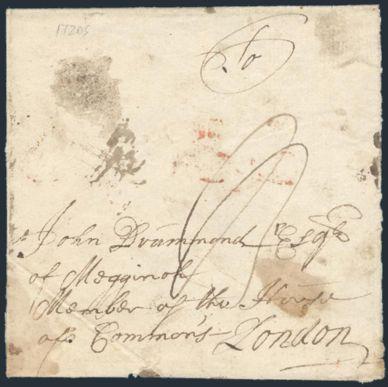 To
John Drummond Esqr
of Megginch
Member of the House
of Common's London